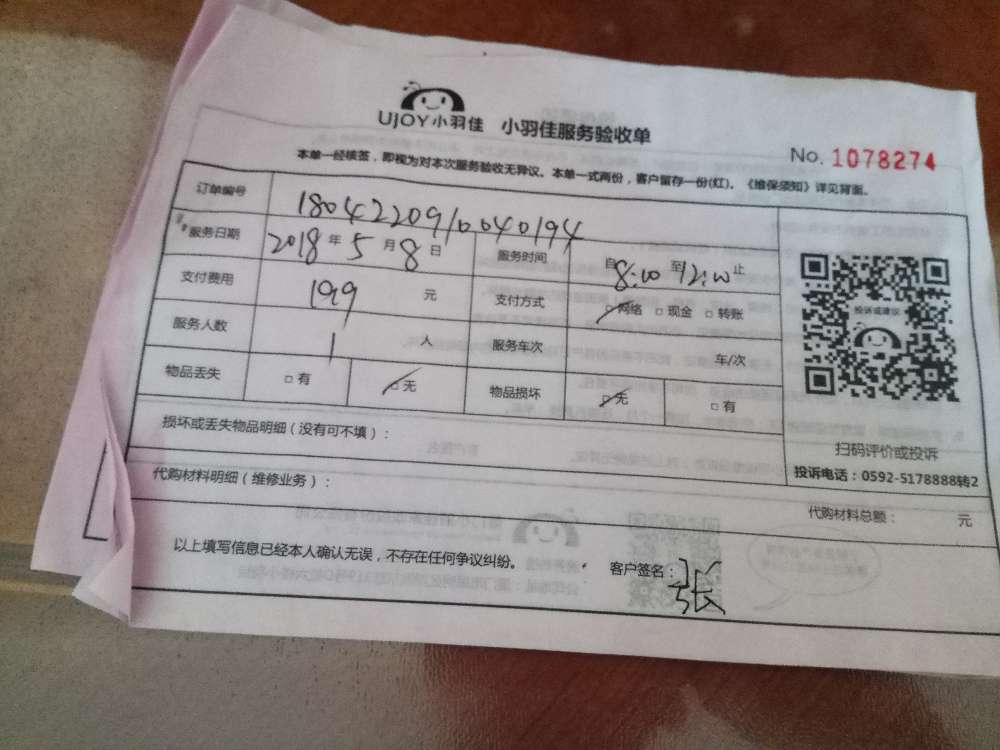 UJOY小羽佳 小羽佳服务验收单
No. 1078274
本单一经核签，即视为对本次服务验收无异议。本单一式两份，客户留存一份(红)。《维保须知》详见背面。
订单编号 1804220910040194
服务日期 2018年5月8日 服务时间 自8:00至12:00止
支付费用 199元 支付方式 □网络 □现金 □转账
服务人数 1人 服务车次 车/次
物品丢失 □有 □无 物品损坏 □无 □有
投诉或建议
扫码评价或投诉
投诉电话：0592-5178888转2
损坏或丢失物品明细（没有可不填）：
代购材料明细（维修业务）：
代购材料总额： 元
以上填写信息已经本人确认无误，不存在任何争议纠纷。 客户签名：张